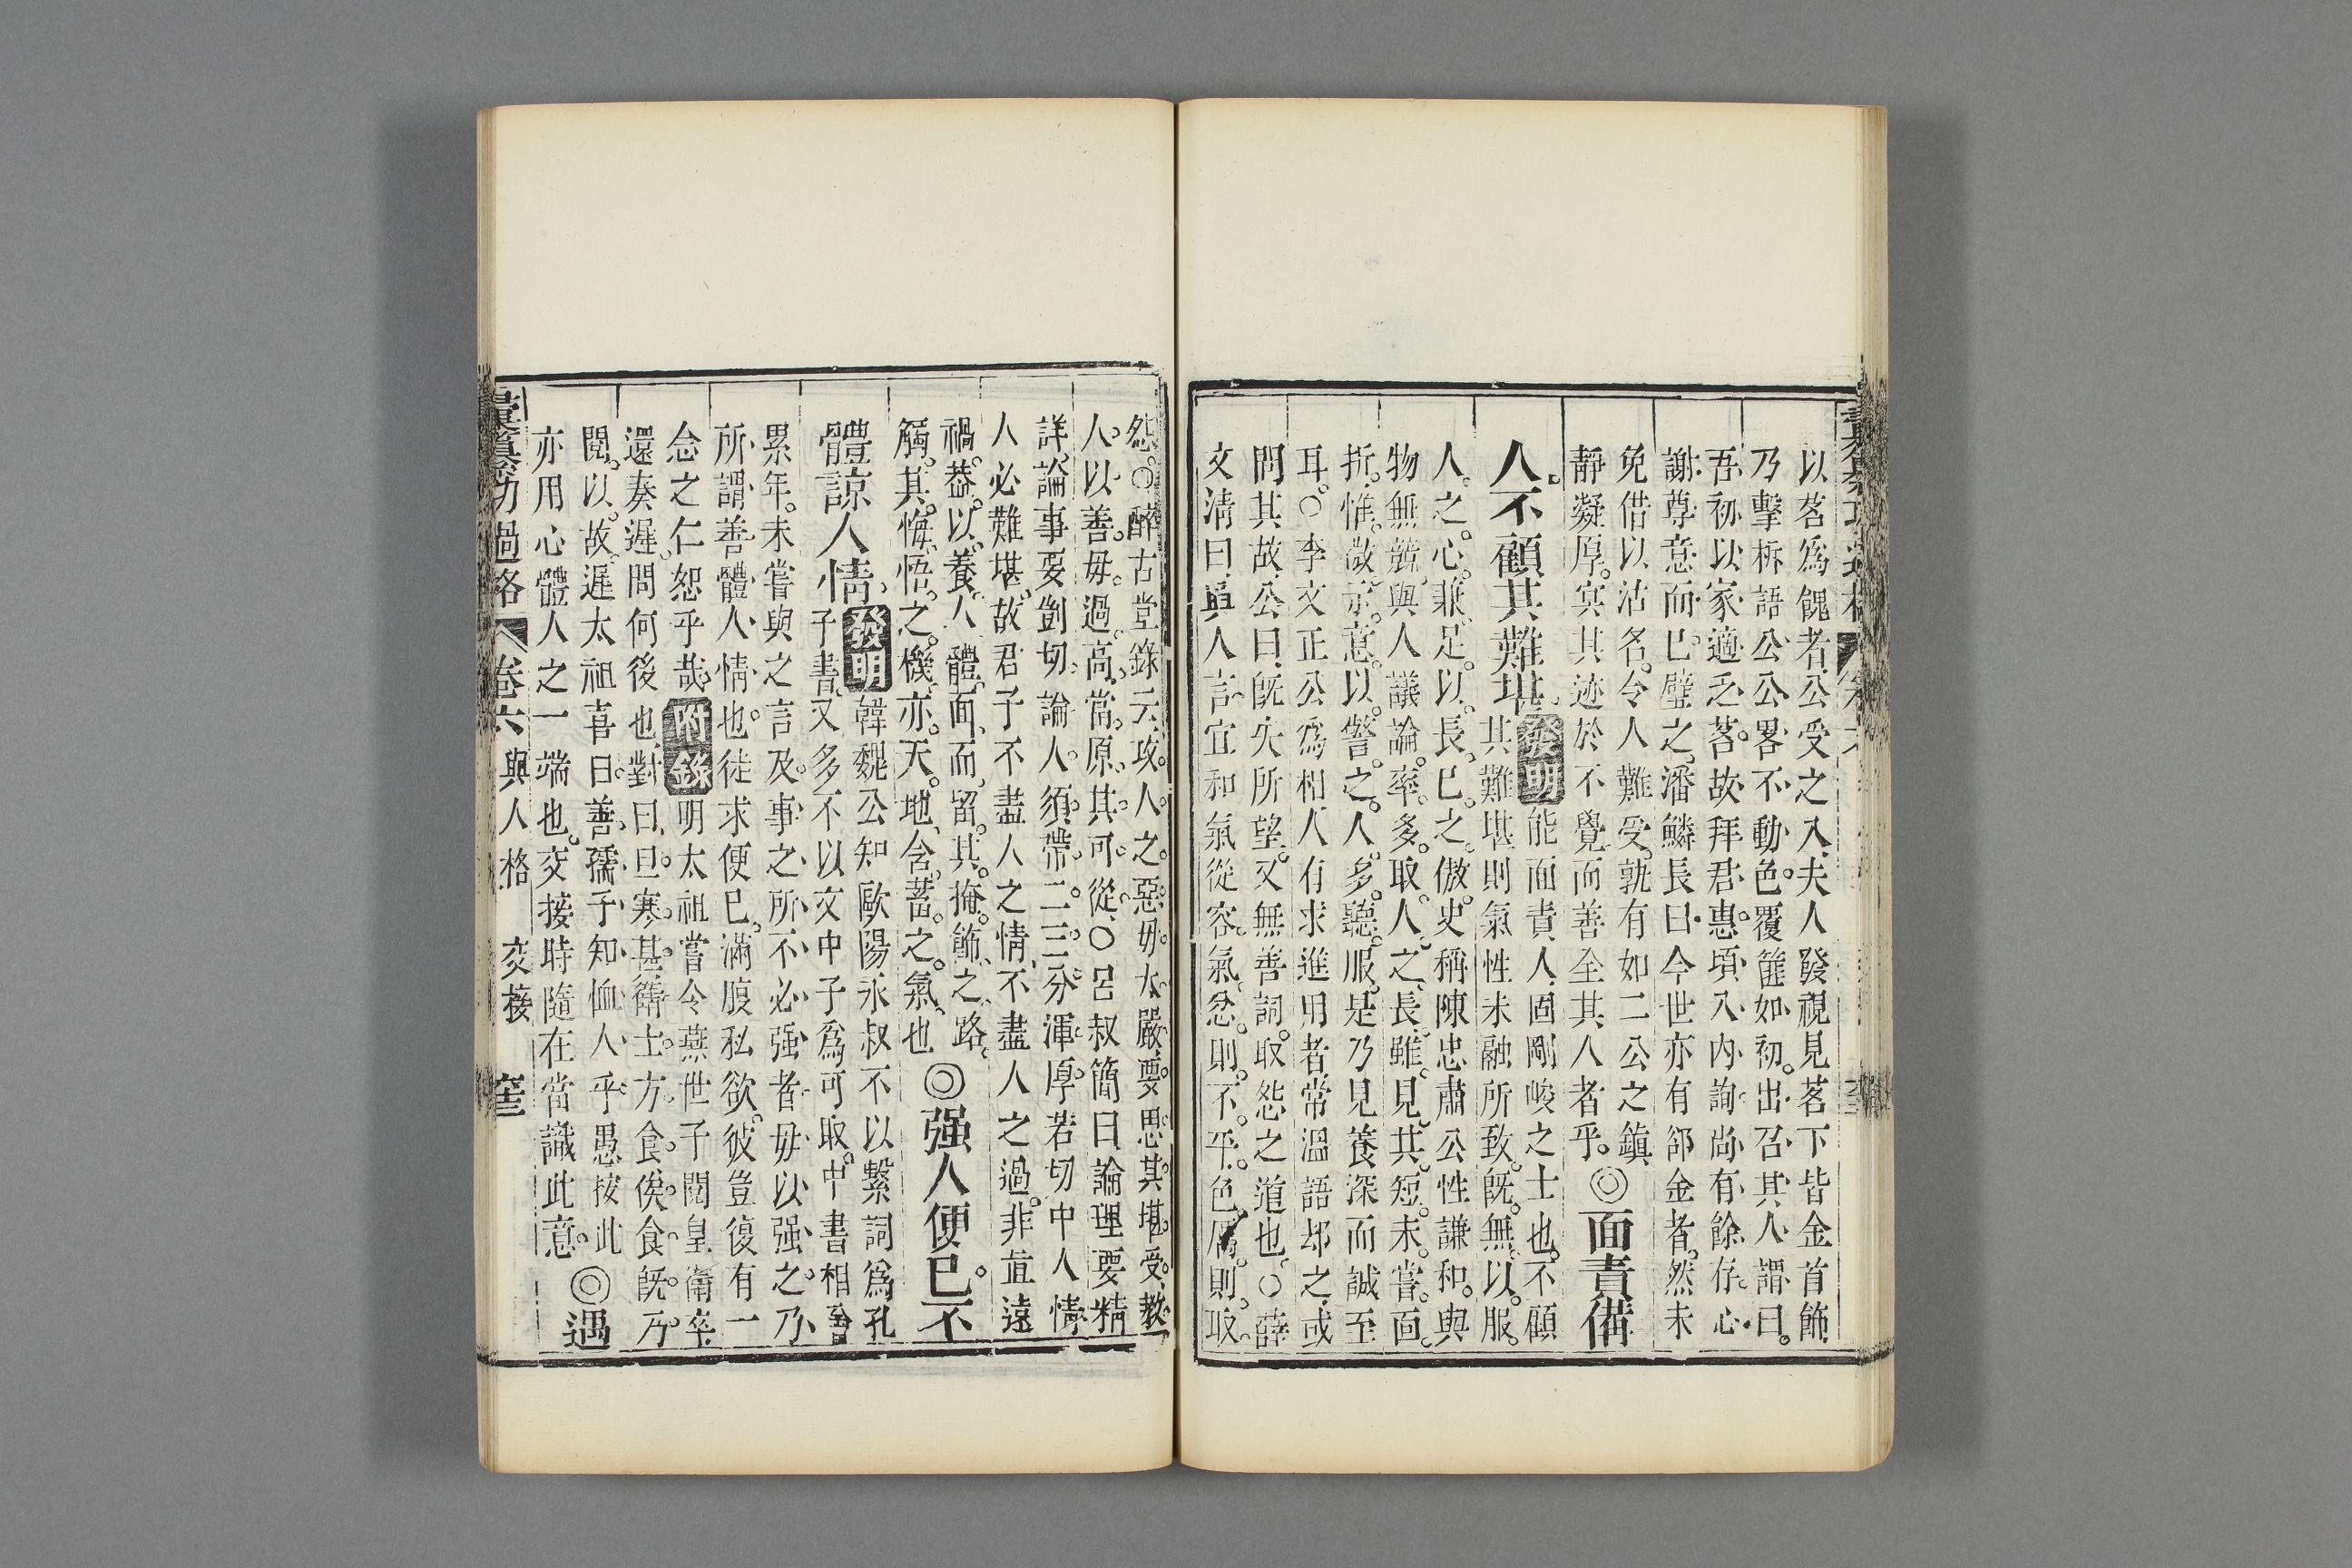 以茗爲餽者公受之入夫人發視見茗下皆金首飾
乃擊柝語公公畧不動色覆篚如初出召其人謂曰
吾初以家適乏茗故拜君惠頃入內詢尚有餘存心
謝尊意而已璧之潘鱗長曰今世亦有郤金者然未
免借以沽名令人難受孰有如二公之鎮
靜凝厚寘其迹於不覺而善全其人者乎◎面責備
人不顧其難堪發明能面責人固剛峻之士也不顧
其難堪則氣性未融所致旣無以服
人之心兼足以長已之傲史稱陳忠肅公性謙和與
物無競與人議論率多取人之長雖見其短未嘗面
折惟微示意以警之人多聽服是乃見養深而誠至
耳○李文正公爲相人有求進用者常溫語却之或
問其故公曰旣失所望又無善詞取怨之道也○薛
文清曰與人言宜和氣從容氣忿則不平色厲則取
怨○醉古堂錄云攻人之惡毋太嚴要思其堪受教
人以善毋過高當原其可從○呂叔簡曰論理要精
詳論事要剴切論人須帶二三分渾厚若切中人情
人必難堪故君子不盡人之情不盡人之過非直遠
禍葢以養人體面而留其掩飾之路
觸其悔悟之機亦天地含蓄之氣也◎强人便已不
體諒人情發明韓魏公知歐陽永叔不以繫詞爲孔
子書又多不以文中子爲可取中書相會
累年未嘗與之言及事之所不必强者毋以强之乃
所謂善體人情也徒求便已滿腹私欲彼豈復有一
念之仁恕乎哉附錄明太祖嘗令燕世子閱皇衛卒
還奏遲問何後也對曰旦寒甚衛士方食俟食旣乃
閱以故遲太祖喜曰善孺子知恤人乎愚按此
亦用心體人之一端也交接時隨在當識此意◎遇
彙纂功過格 卷六 與人格 交接